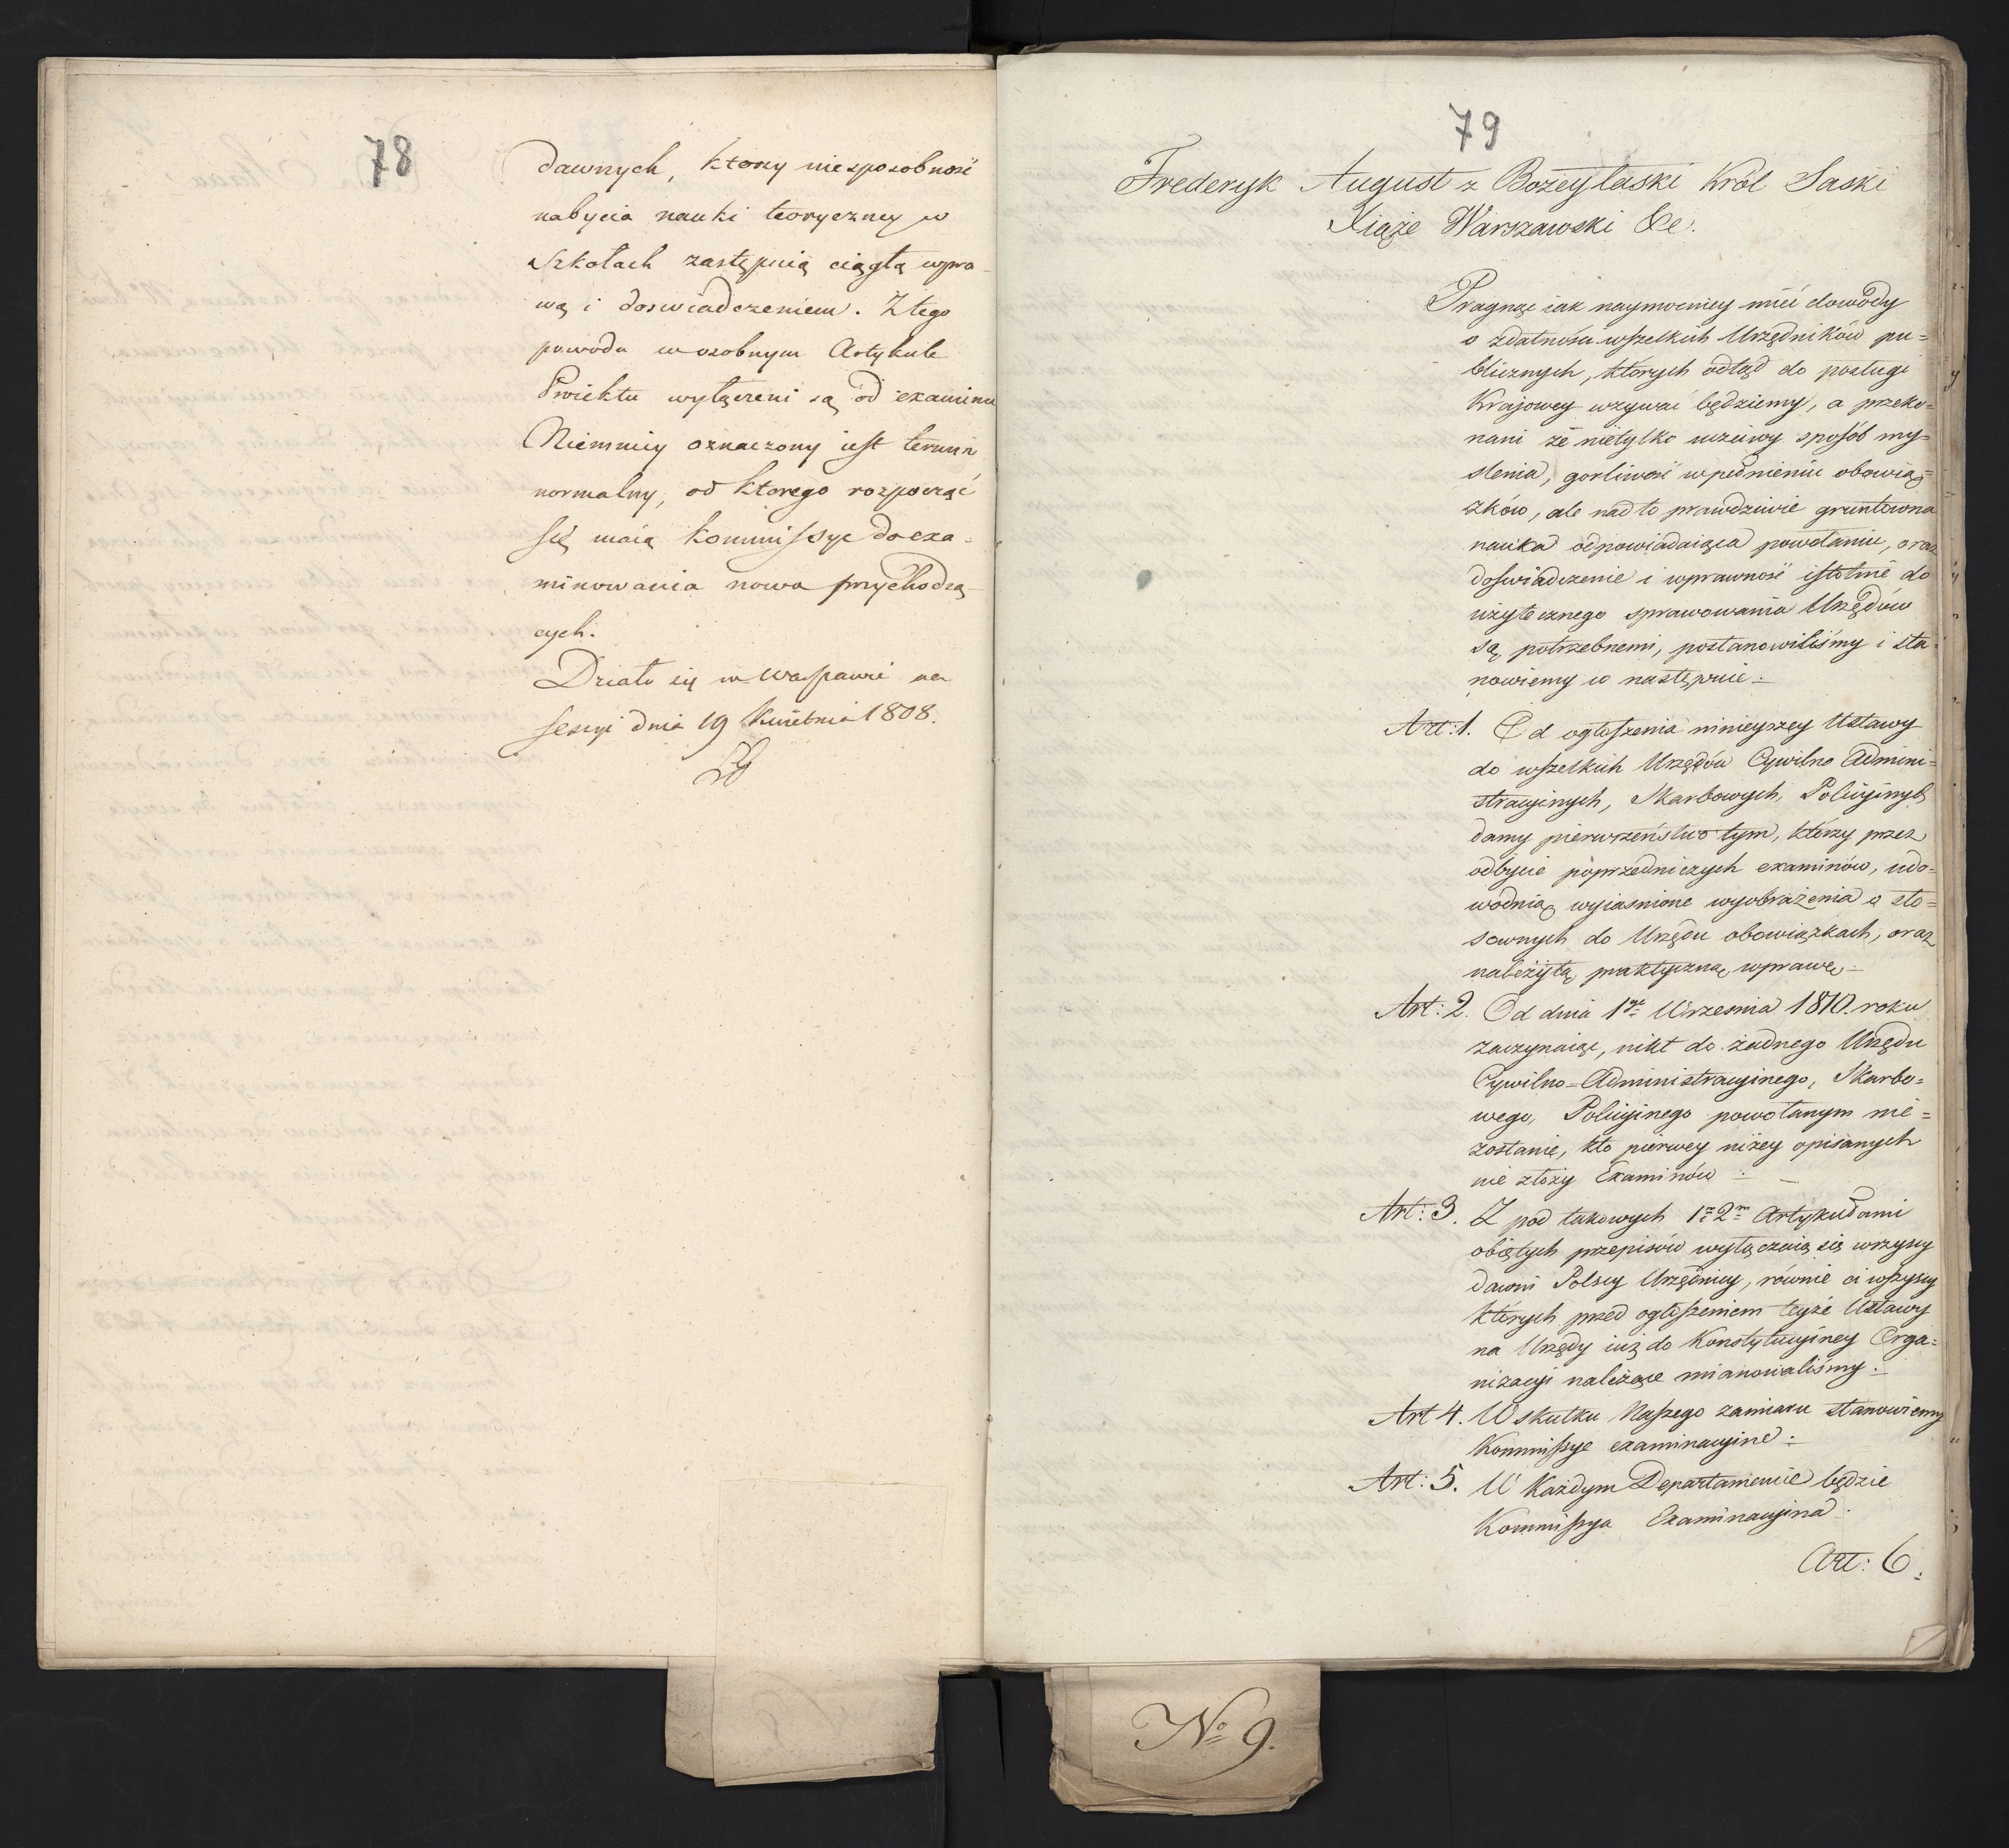 78
dawnych, ktorzy niesposobność
nabycia nauki teoryczney w
Szkołach zastępuią ciągłą wpra-
wą i doswiadczeniem. Z tego
powodu w osobnym Artykule
Proiektu wyłączeni są od examinu
Niemniey oznaczony iest termin
normalny, od ktorego rozpocząć
się maią Kommissye do exa-
minowania nowo przychodzą-
cych.
Działo się w Warszawie na
sessyi dnia 19 Kwietnia 1808.
79
Frederyk August z Bożey łaski Król Saski
Xiąże Warszawski &c.
Pragnąc iak naymocniey mieć dowody
o zdatności wszelkich Urzędników pu=
blicznych, których odtąd do posługi
Krajowey wzywać będziemy, a przeko=
nani że nietylko uczciwy sposób my=
slenia, gorliwość w pełnieniu obowią=
zków, ale nad to prawdziwie gruntowna
nauka odpowiadaiąca powołaniu, oraz
doświadczenie i wprawność istotnie do
użytecznego sprawowania Urzędów
są potrzebnemi, postanowiliśmy i sta=
nowiemy co następuie.
Art: 1. Od ogłoszenia ninieyszey Ustawy
do wszelkich Urzędów Cywilno Admini=
stracyinych, Skarbowych, Policyinych
damy pierwszeństwo tym, którzy przez
odbycie poprzedniczych examinów, udo=
wodnią wyiasnione wyobrażenia o sto=
sownych do Urzędu obowiązkach, oraz
należytą praktyczną wprawę.
Art: 2. Od dnia 1go Wrzesnia 1810. roku
zaczynaiąc, nikt do żadnego Urzędu
Cywilno=Administracyinego, Skarbo=
wego, Policyinego powołanym nie=
zostanie, kto pierwey niżey opisanych
nie złoży Examinów
Art: 3. Z pod takowych 1m i 2m Artykułami
obiętych przepisów wyłączaią się wszyscy
dawni Polscy Urzędnicy, równie ci wszyscy
których przed ogłoszeniem teyże Ustawy
na Urzędy iuż do Konstytucyiney Orga=
nizacyi należące mianowaliśmy.
Art 4. W skutku Naszego zamiaru stanowiemy
Kommissye examinacyine.
Art: 5. W Każdym Departamencie będzie
Kommissya Examinacyina.
Art: 6.
No 9.